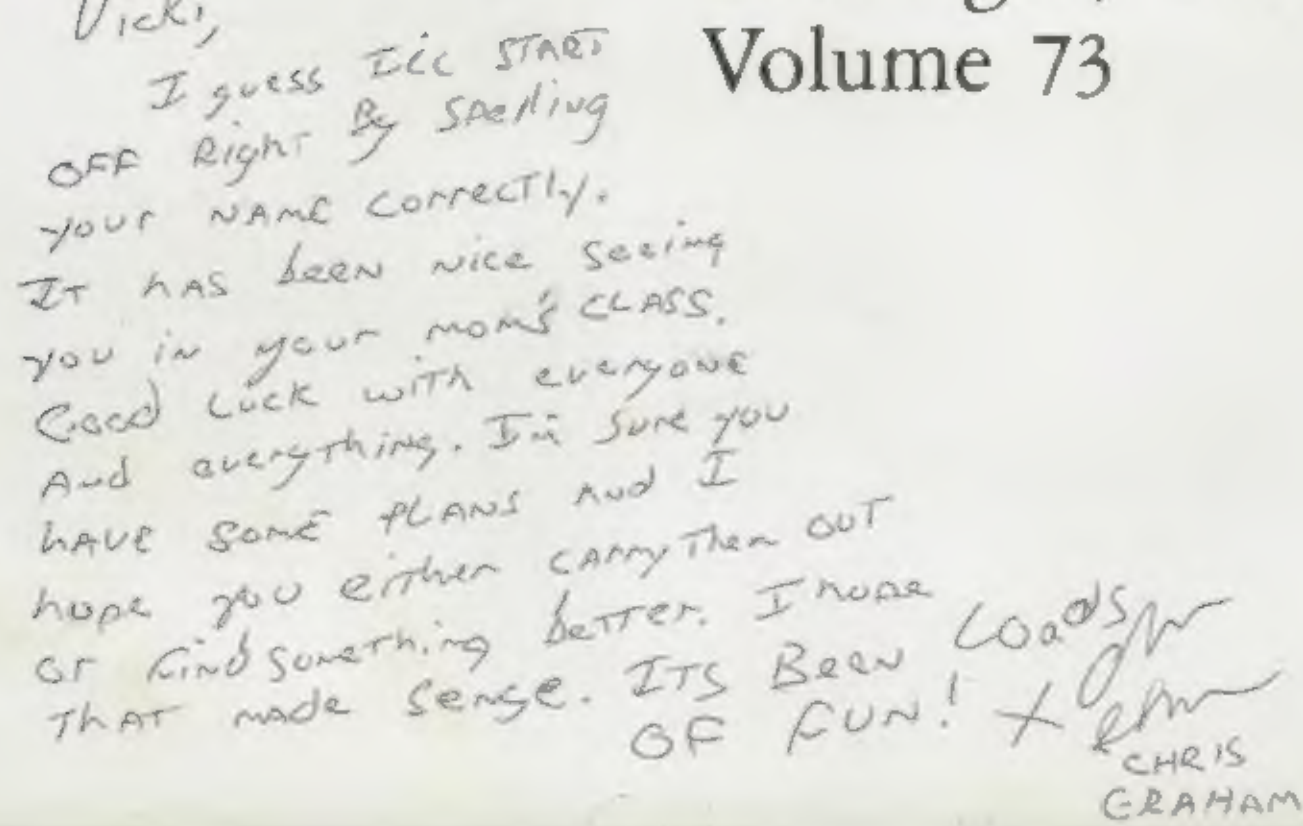 Vicki,
Volume 73
I guess I'll START
OFF Right By Spelling
your NAME correctly.
IT hAS been nice seeing
you in your mom's CLASS.
Good Luck with everyone
And everything. I'm sure you
hAVE SOME PLANS And I
hope you either cArry Them OUT
or find something better. I hope
ThAT made sense. ITS Been Loads
OF FUN!
X
CHRIS
GRAHAM